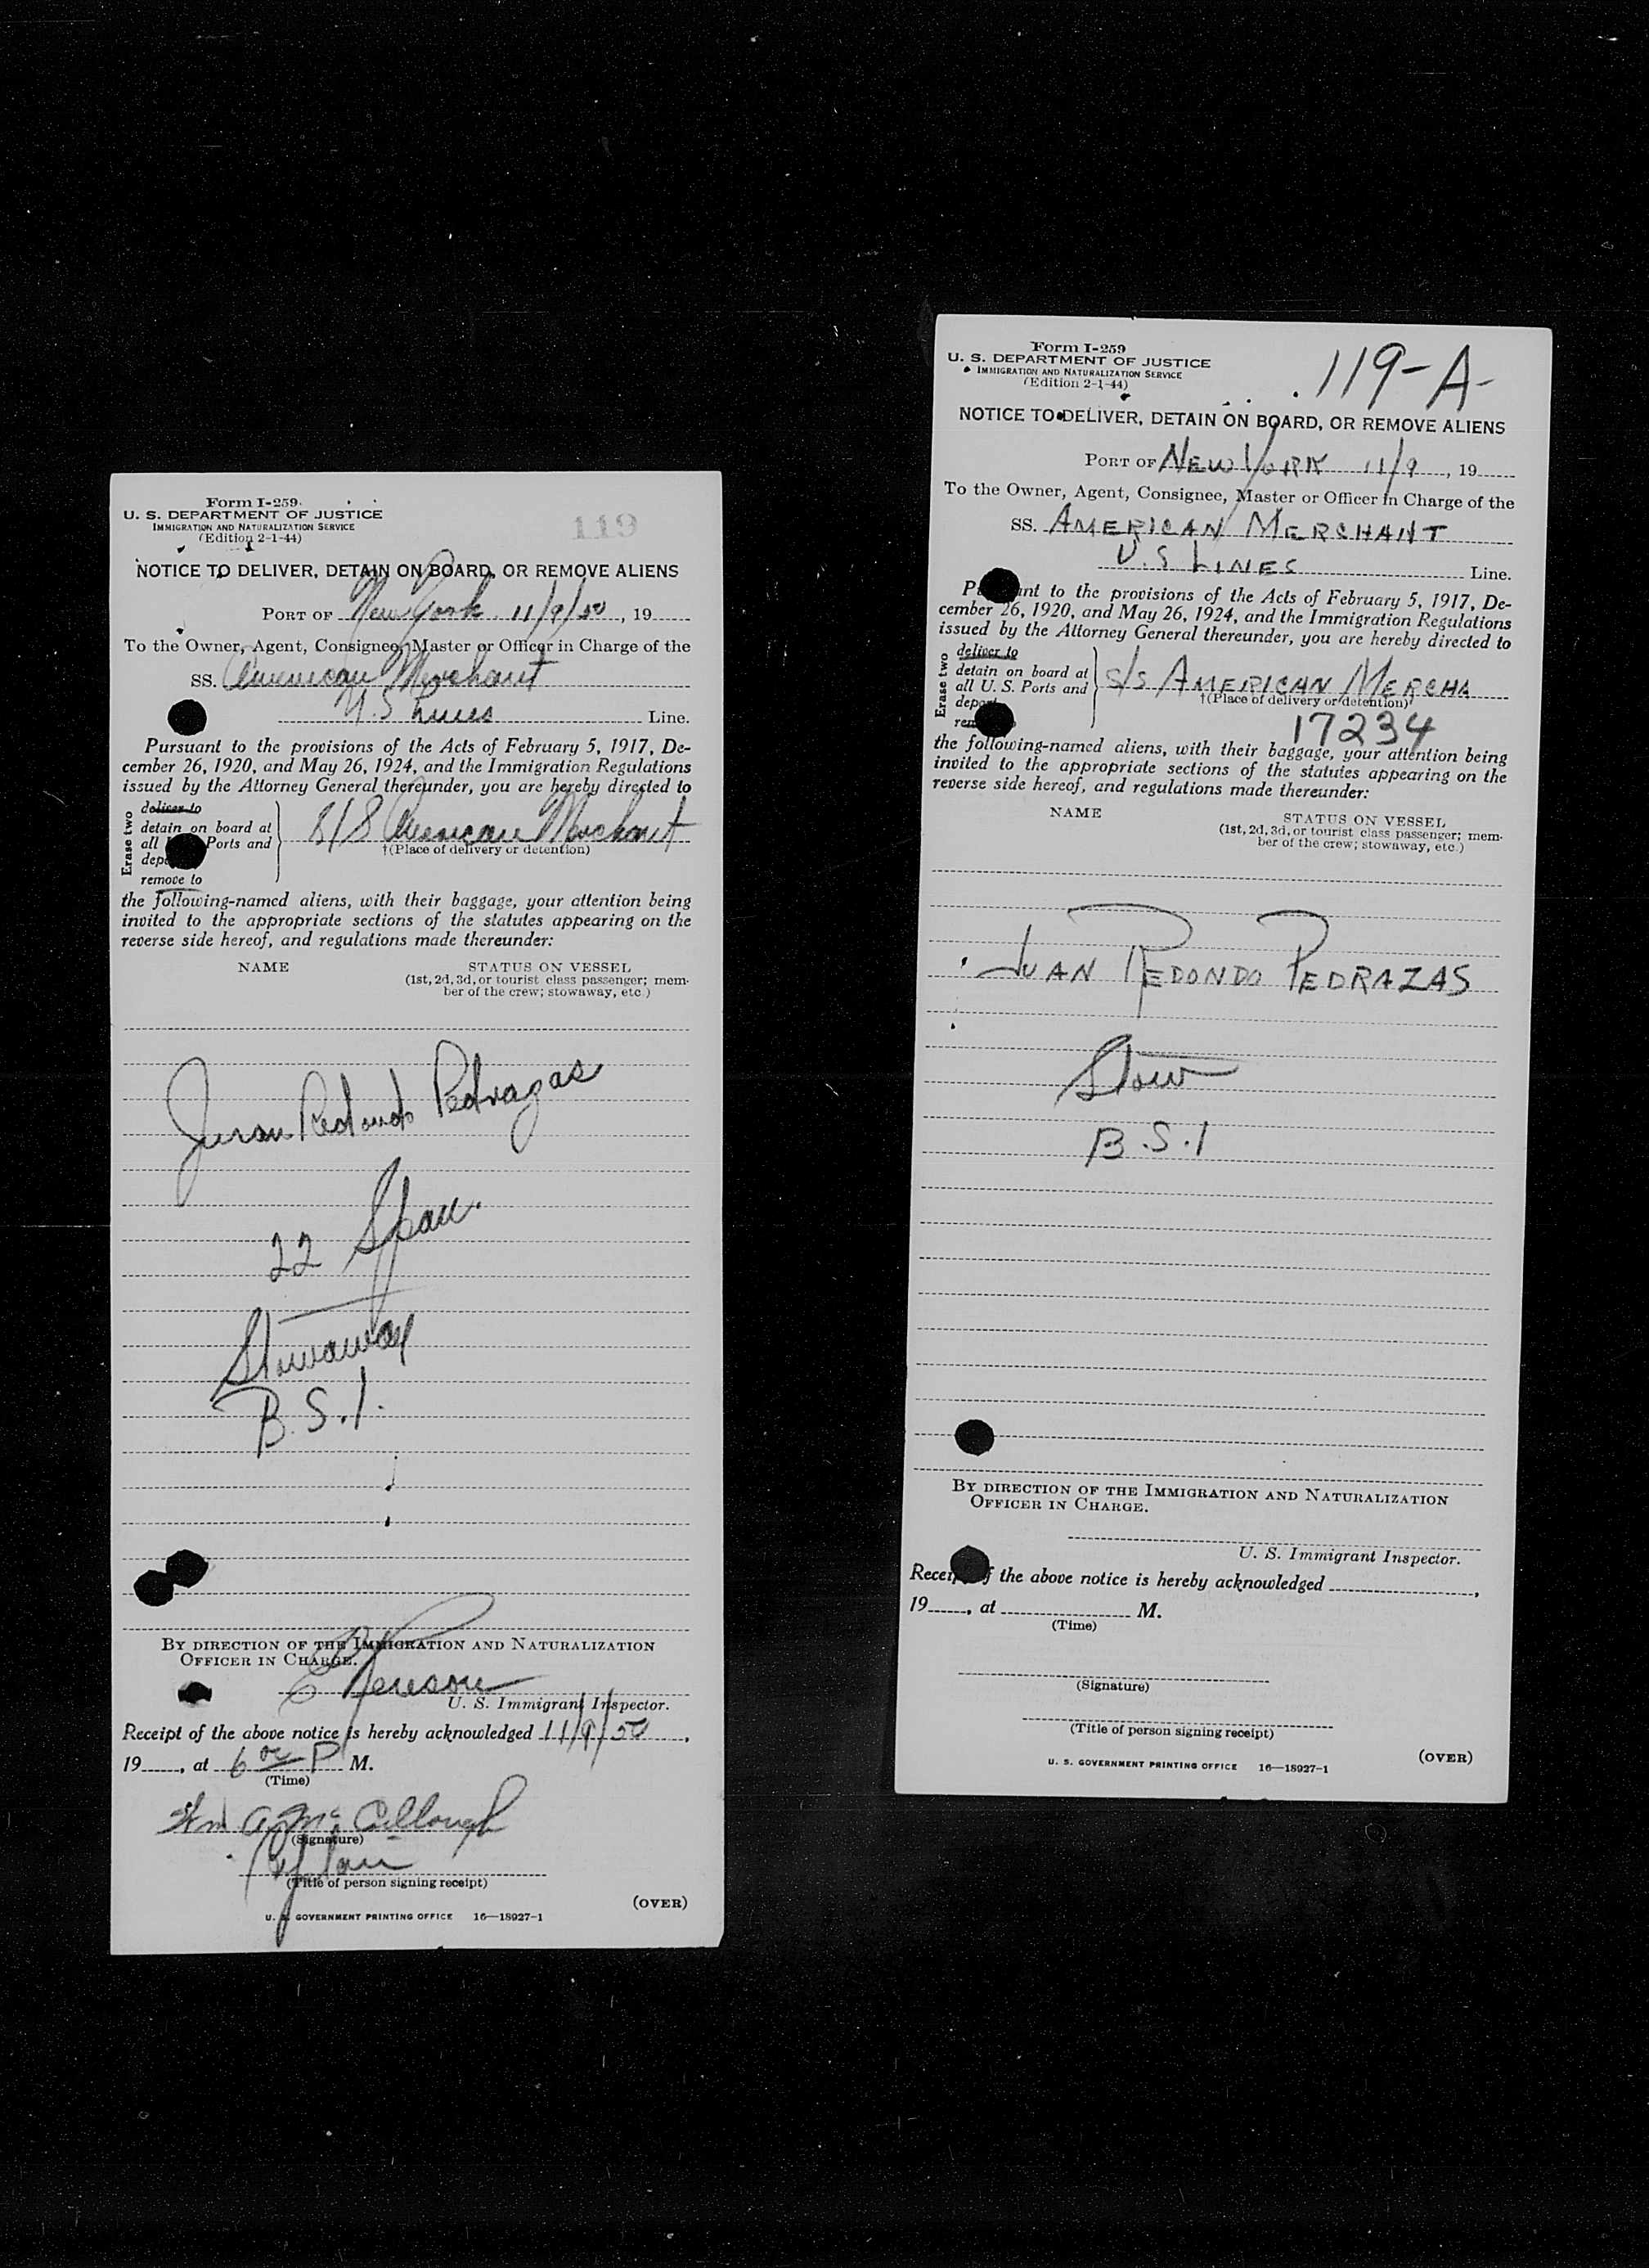 Form I-259
U. S. DEPARTMENT OF JUSTICE
IMMIGRATION AND NATURALIZATION SERVICE
(Edition 2-1-44)
119
NOTICE TO DELIVER, DETAIN ON BOARD, OR REMOVE ALIENS
PORT OF New York 11/9/50, 19
To the Owner, Agent, Consignee, Master or Officer in Charge of the
SS. American Merchant
U.S Lines Line.
Pursuant to the provisions of the Acts of February 5, 1917, De-
cember 26, 1920, and May 26, 1924, and the Immigration Regulations
issued by the Attorney General thereunder, you are hereby directed to
Erase two
deliver to
detain on board at
all Ports and
remove to
S/S American Merchant
†(Place of delivery or detention)
the following-named aliens, with their baggage, your attention being
invited to the appropriate sections of the statutes appearing on the
reverse side hereof, and regulations made thereunder:
NAME STATUS ON VESSEL
(1st, 2d, 3d, or tourist class passenger; mem-
ber of the crew; stowaway, etc.)
Juan Redondo Pedrazas
22 Span.
Stowaway
B.S.I.
BY DIRECTION OF THE IMMIGRATION AND NATURALIZATION
OFFICER IN CHARGE.
U. S. Immigrant Inspector.
Receipt of the above notice is hereby acknowledged 11/9/50,
19, at 6 00 P M.
(Time)
Wm A. McCullough
(Signature)
(Title of person signing receipt)
(OVER)
U. S. GOVERNMENT PRINTING OFFICE 16—18927-1
Form I-259
U. S. DEPARTMENT OF JUSTICE
IMMIGRATION AND NATURALIZATION SERVICE
(Edition 2-1-44)
119-A-
NOTICE TO DELIVER, DETAIN ON BOARD, OR REMOVE ALIENS
PORT OF NEW YORK 11/9, 19
To the Owner, Agent, Consignee, Master or Officer in Charge of the
SS. AMERICAN MERCHANT
U.S LINES Line.
Pursuant to the provisions of the Acts of February 5, 1917, De-
cember 26, 1920, and May 26, 1924, and the Immigration Regulations
issued by the Attorney General thereunder, you are hereby directed to
Erase two
deliver to
detain on board at
all U. S. Ports and
S/S AMERICAN MERCHA
†(Place of delivery or detention)
17234
the following-named aliens, with their baggage, your attention being
invited to the appropriate sections of the statutes appearing on the
reverse side hereof, and regulations made thereunder:
NAME STATUS ON VESSEL
(1st, 2d, 3d, or tourist class passenger; mem-
ber of the crew; stowaway, etc.)
JUAN REDONDO PEDRAZAS
Stow
B.S.I
BY DIRECTION OF THE IMMIGRATION AND NATURALIZATION
OFFICER IN CHARGE.
U. S. Immigrant Inspector.
Receipt of the above notice is hereby acknowledged ,
19, at M.
(Time)
(Signature)
(Title of person signing receipt)
U. S. GOVERNMENT PRINTING OFFICE 16—18927-1
(OVER)